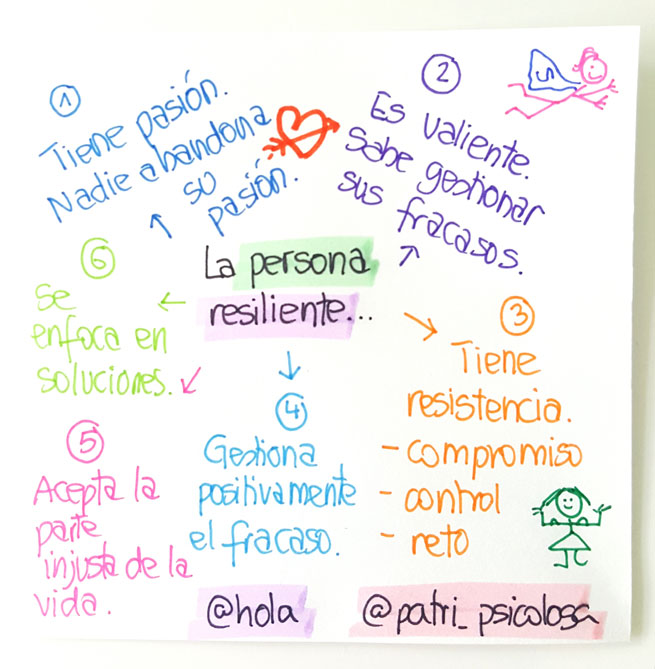 La persona
resiliente...
1
Tiene pasión.
Nadie abandona
su
pasión.
2
Es valiente.
Sabe gestionar
sus fracasos.
3
Tiene
resistencia.
- compromiso
- control
- reto
4
Gestiona
positivamente
el fracaso.
5
Acepta la
parte
injusta de la
vida.
6
Se
enfoca en
soluciones.
S
@hola
@patri_psicologa